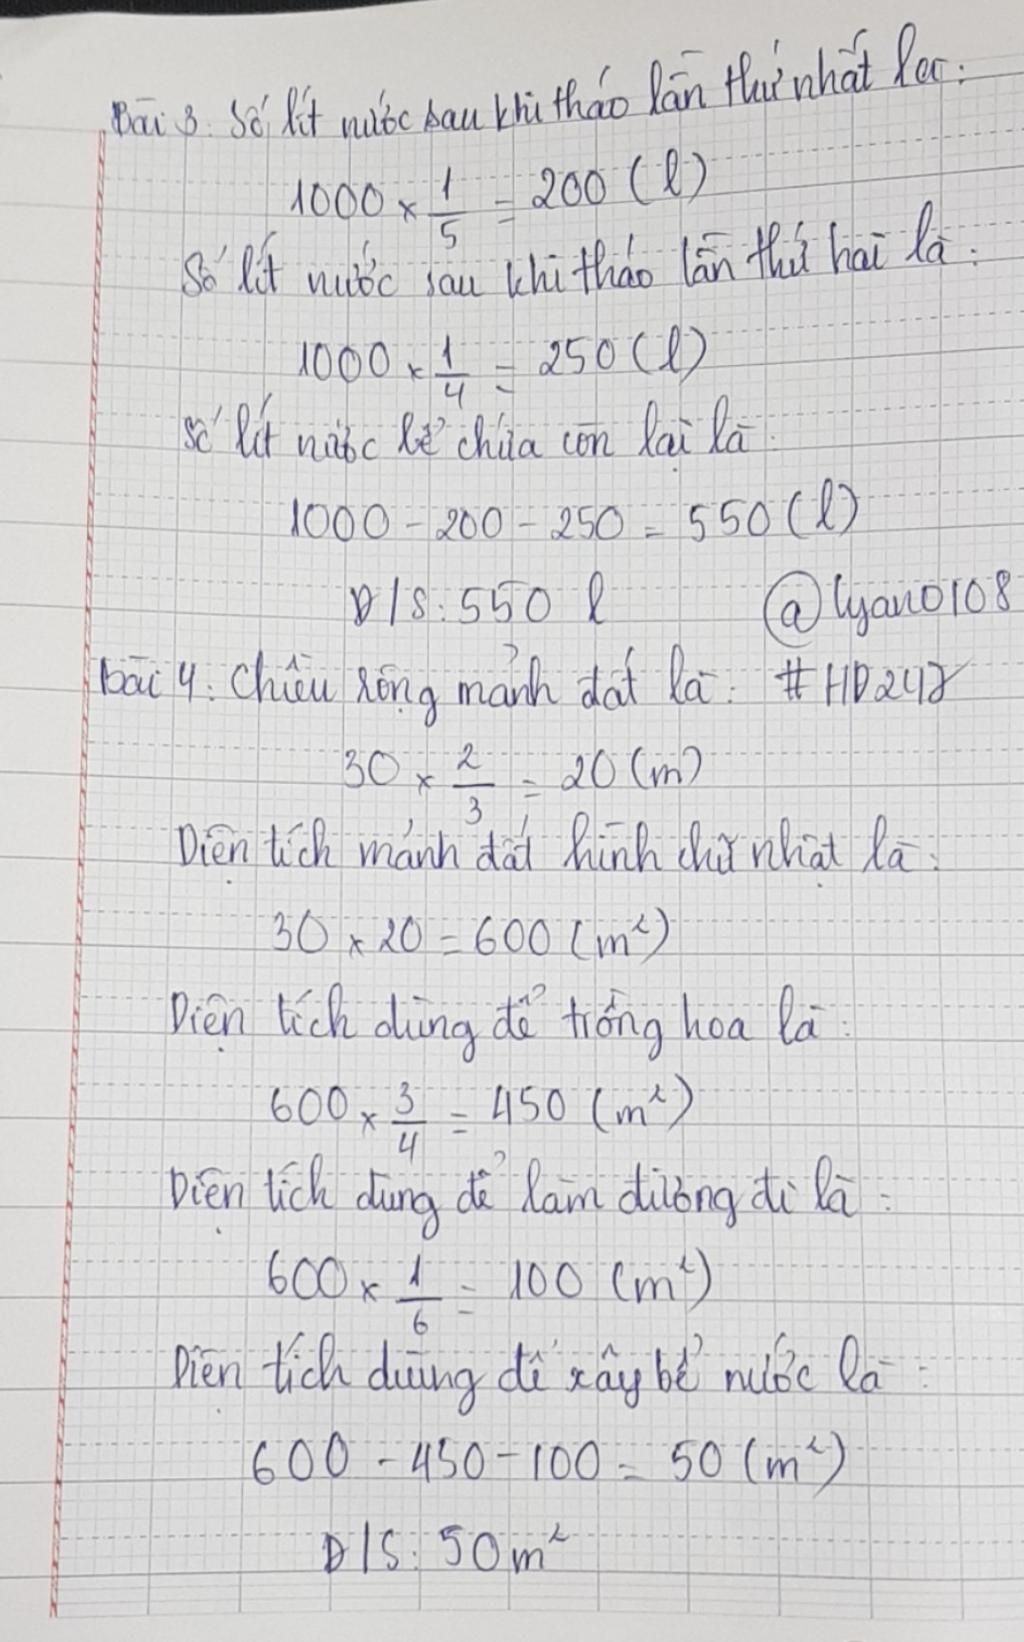 Bài 3: Số lít nước sau khi tháo lần thứ nhất là:
1000 × 1/5 = 200 (l)
Số lít nước sau khi tháo lần thứ hai là:
1000 × 1/4 = 250 (l)
Số lít nước bể chứa còn lại là:
1000 - 200 - 250 = 550 (l)
Đ/S: 550 l
@lyan0108
Bài 4: Chiều rộng mảnh đất là:
#HD247
30 × 2/3 = 20 (m)
Diện tích mảnh đất hình chữ nhật là:
30 × 20 = 600 (m²)
Diện tích dùng để trồng hoa là:
600 × 3/4 = 450 (m²)
Diện tích dùng để làm đường đi là:
600 × 1/6 = 100 (m²)
Diện tích dùng để xây bể nước là:
600 - 450 - 100 = 50 (m²)
Đ/S: 50 m²